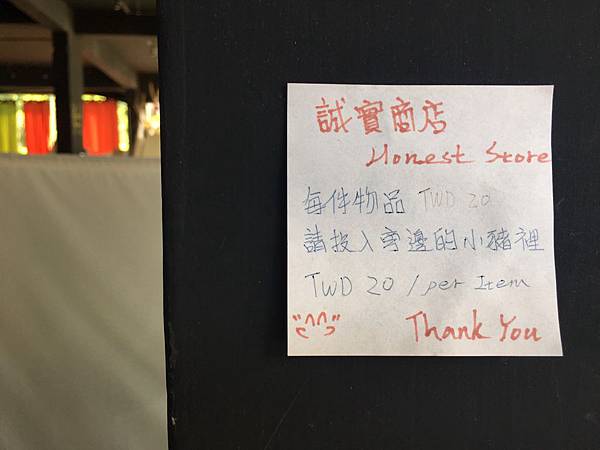 誠實商店
Honest Store
每件物品 TWD 20
請投入旁邊的小豬裡
TWD 20 / per Item
Thank You